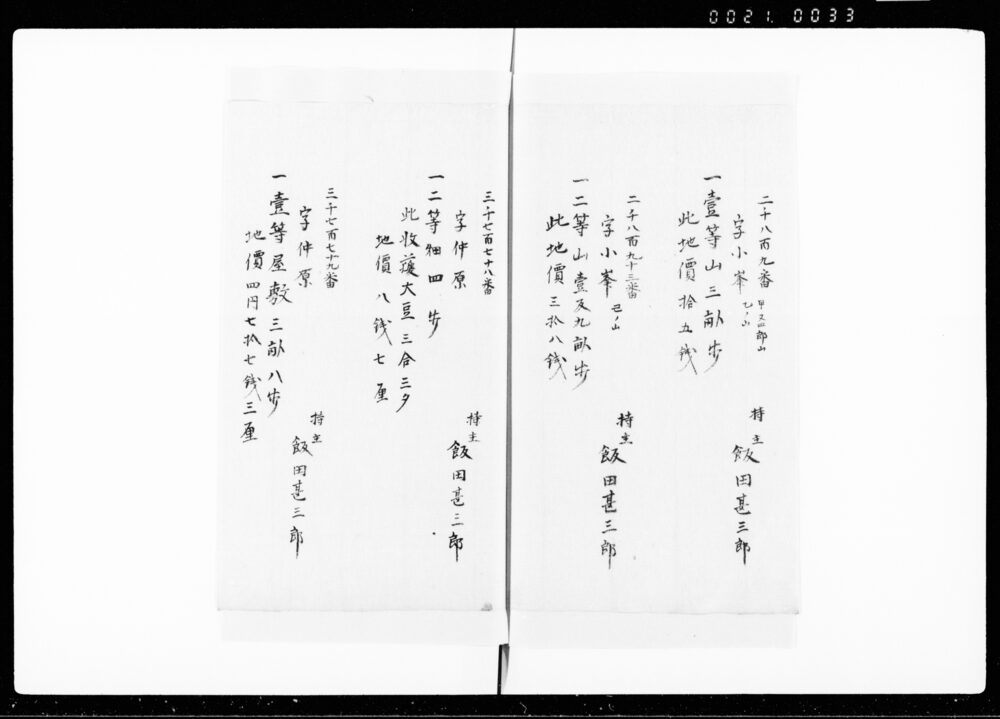 0021. 0033
二千八百九番
字小峯 甲 又四郎山
乙ノ山
一壹等山三畝歩
此地價拾五銭
持主
飯田甚三郎
二千八百九十三番
字小峯 巳ノ山
一二等山壹反九畝歩
此地價三拾八銭
持主
飯田甚三郎
三千七百七十八番
字仲原
一二等畑四歩
此收護大豆三合三夕
地價八銭七厘
持主
飯田甚三郎
三千七百七十九番
字仲原
一壹等屋敷三畝八歩
地價四円七拾七銭三厘
持主
飯田甚三郎